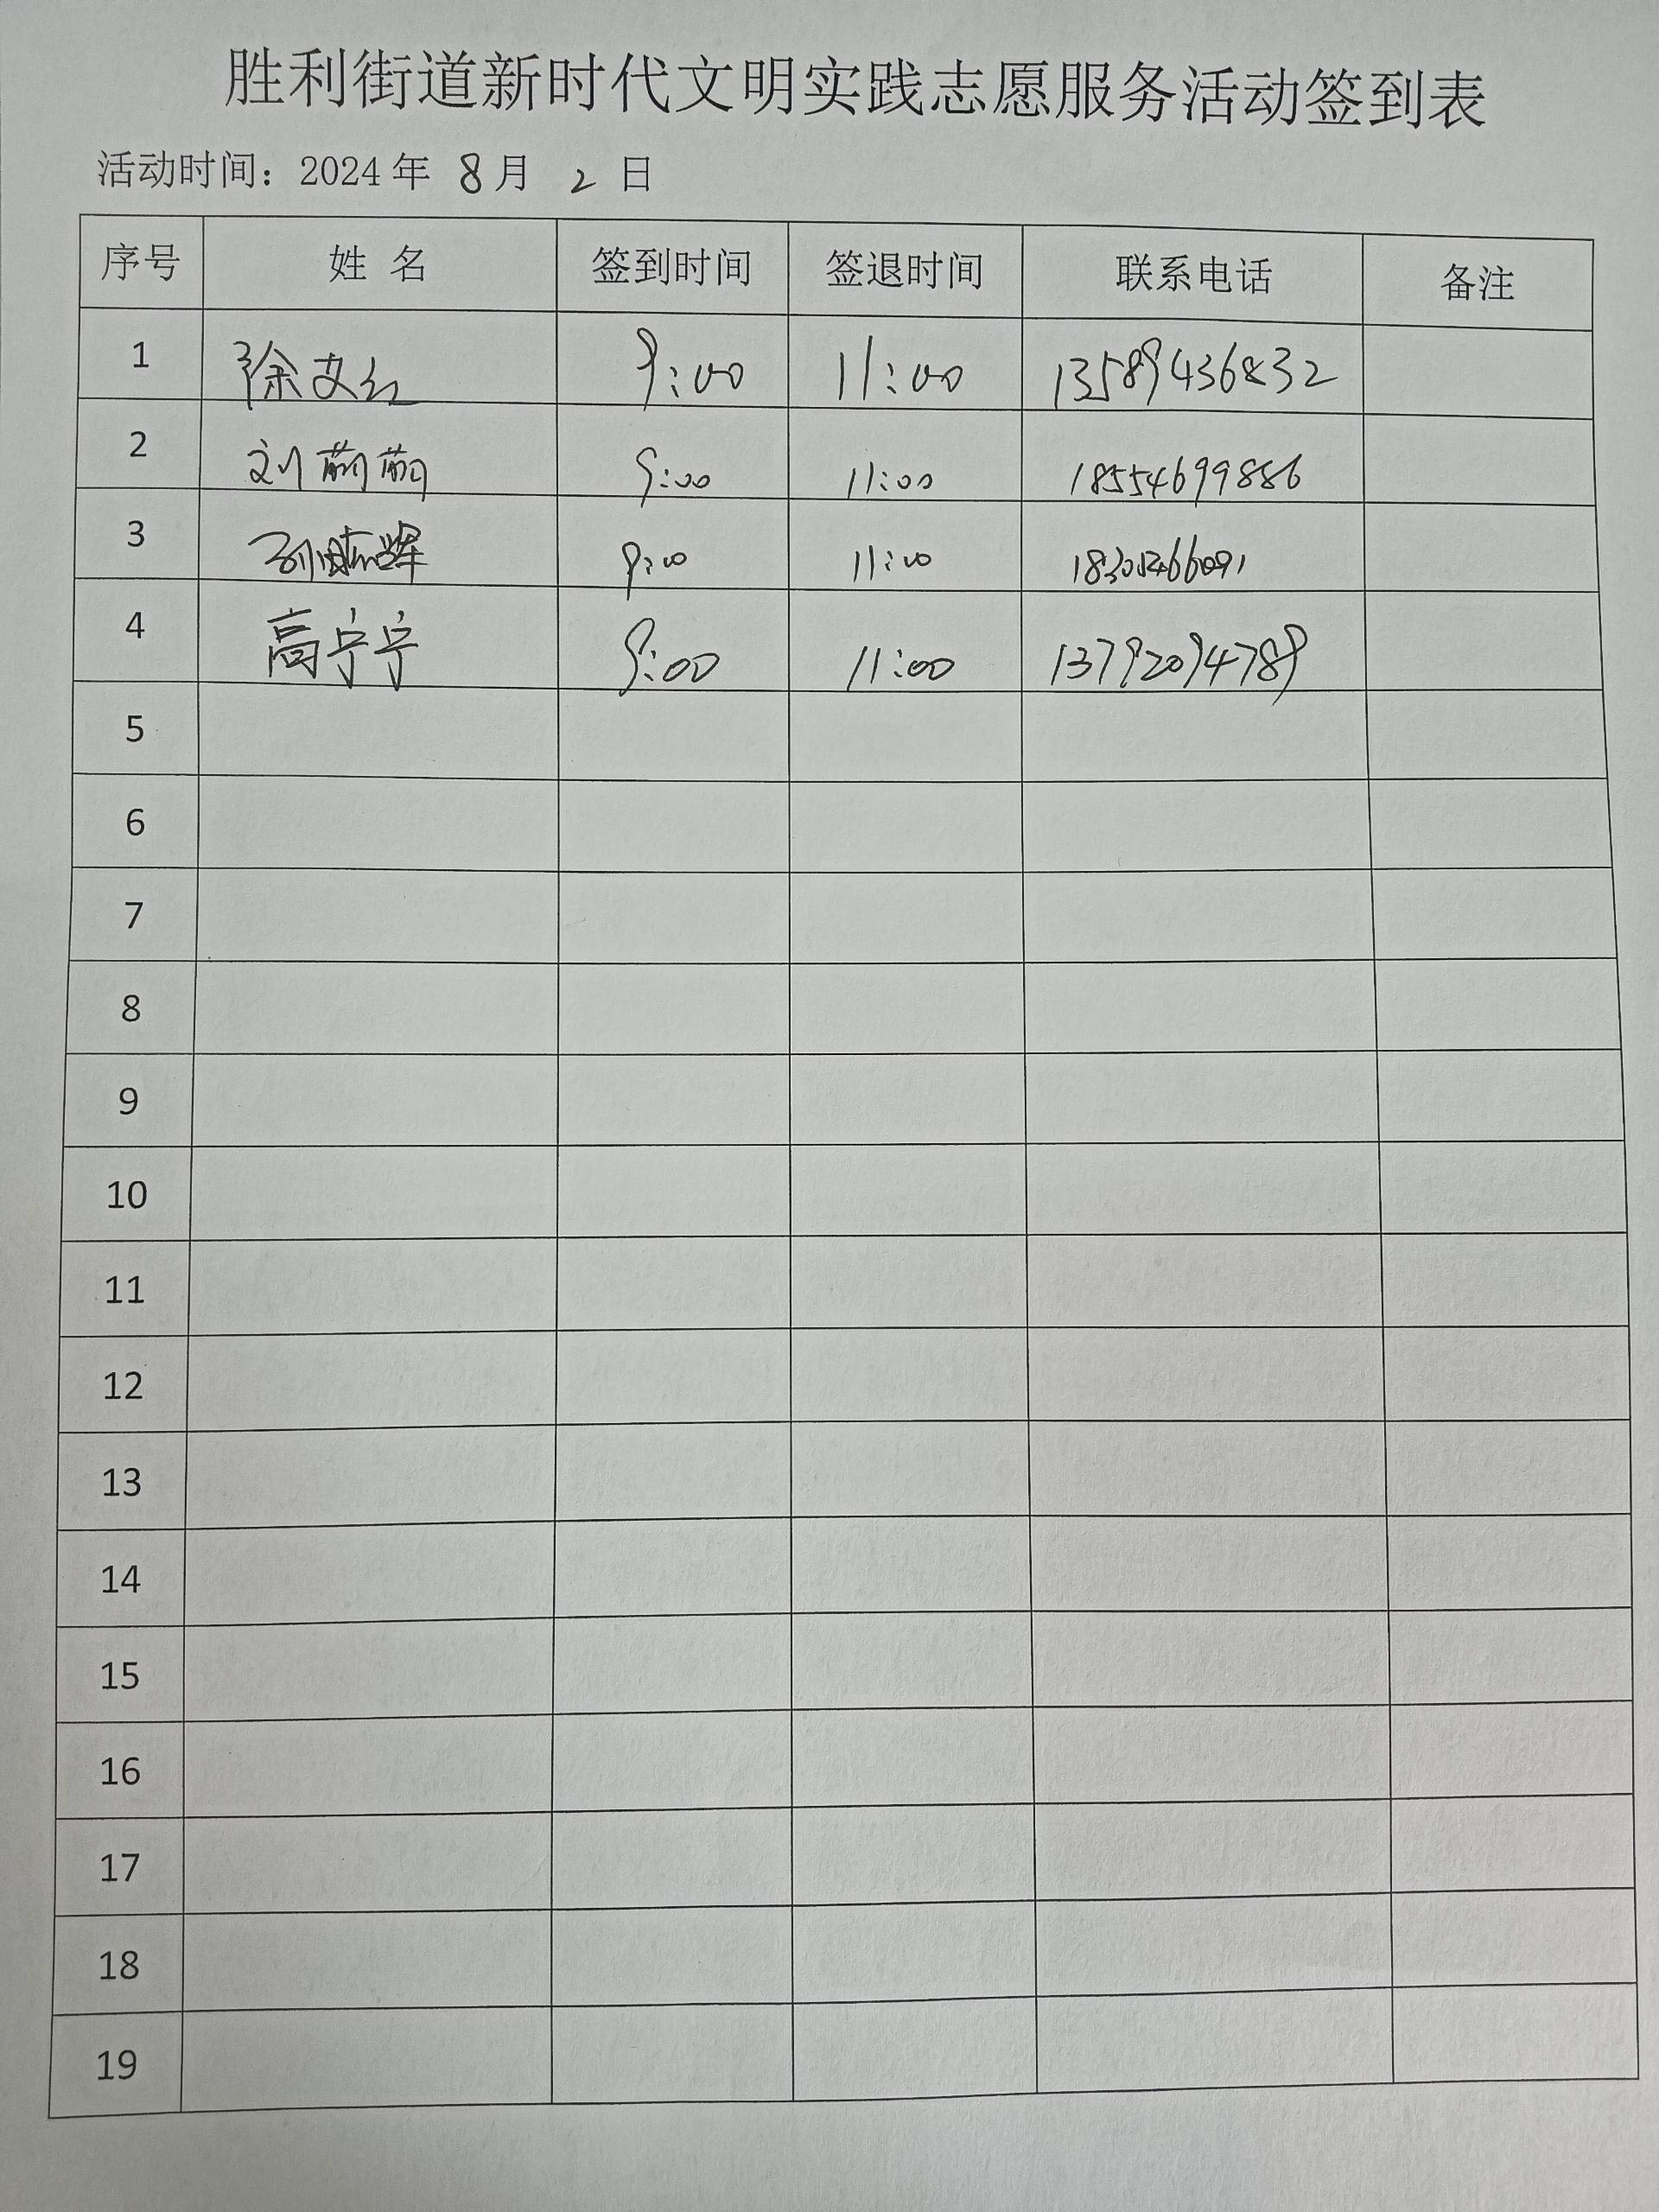 胜利街道新时代文明实践志愿服务活动签到表
活动时间：2024年 8月 2 日
序号 姓 名 签到时间 签退时间 联系电话 备注
1 徐艾红 9:00 11:00 13589436832
2 刘萌萌 9:00 11:00 18554699886
3 9:00 11:00
4 高宁宁 9:00 11:00 13792094789
5
6
7
8
9
10
11
12
13
14
15
16
17
18
19